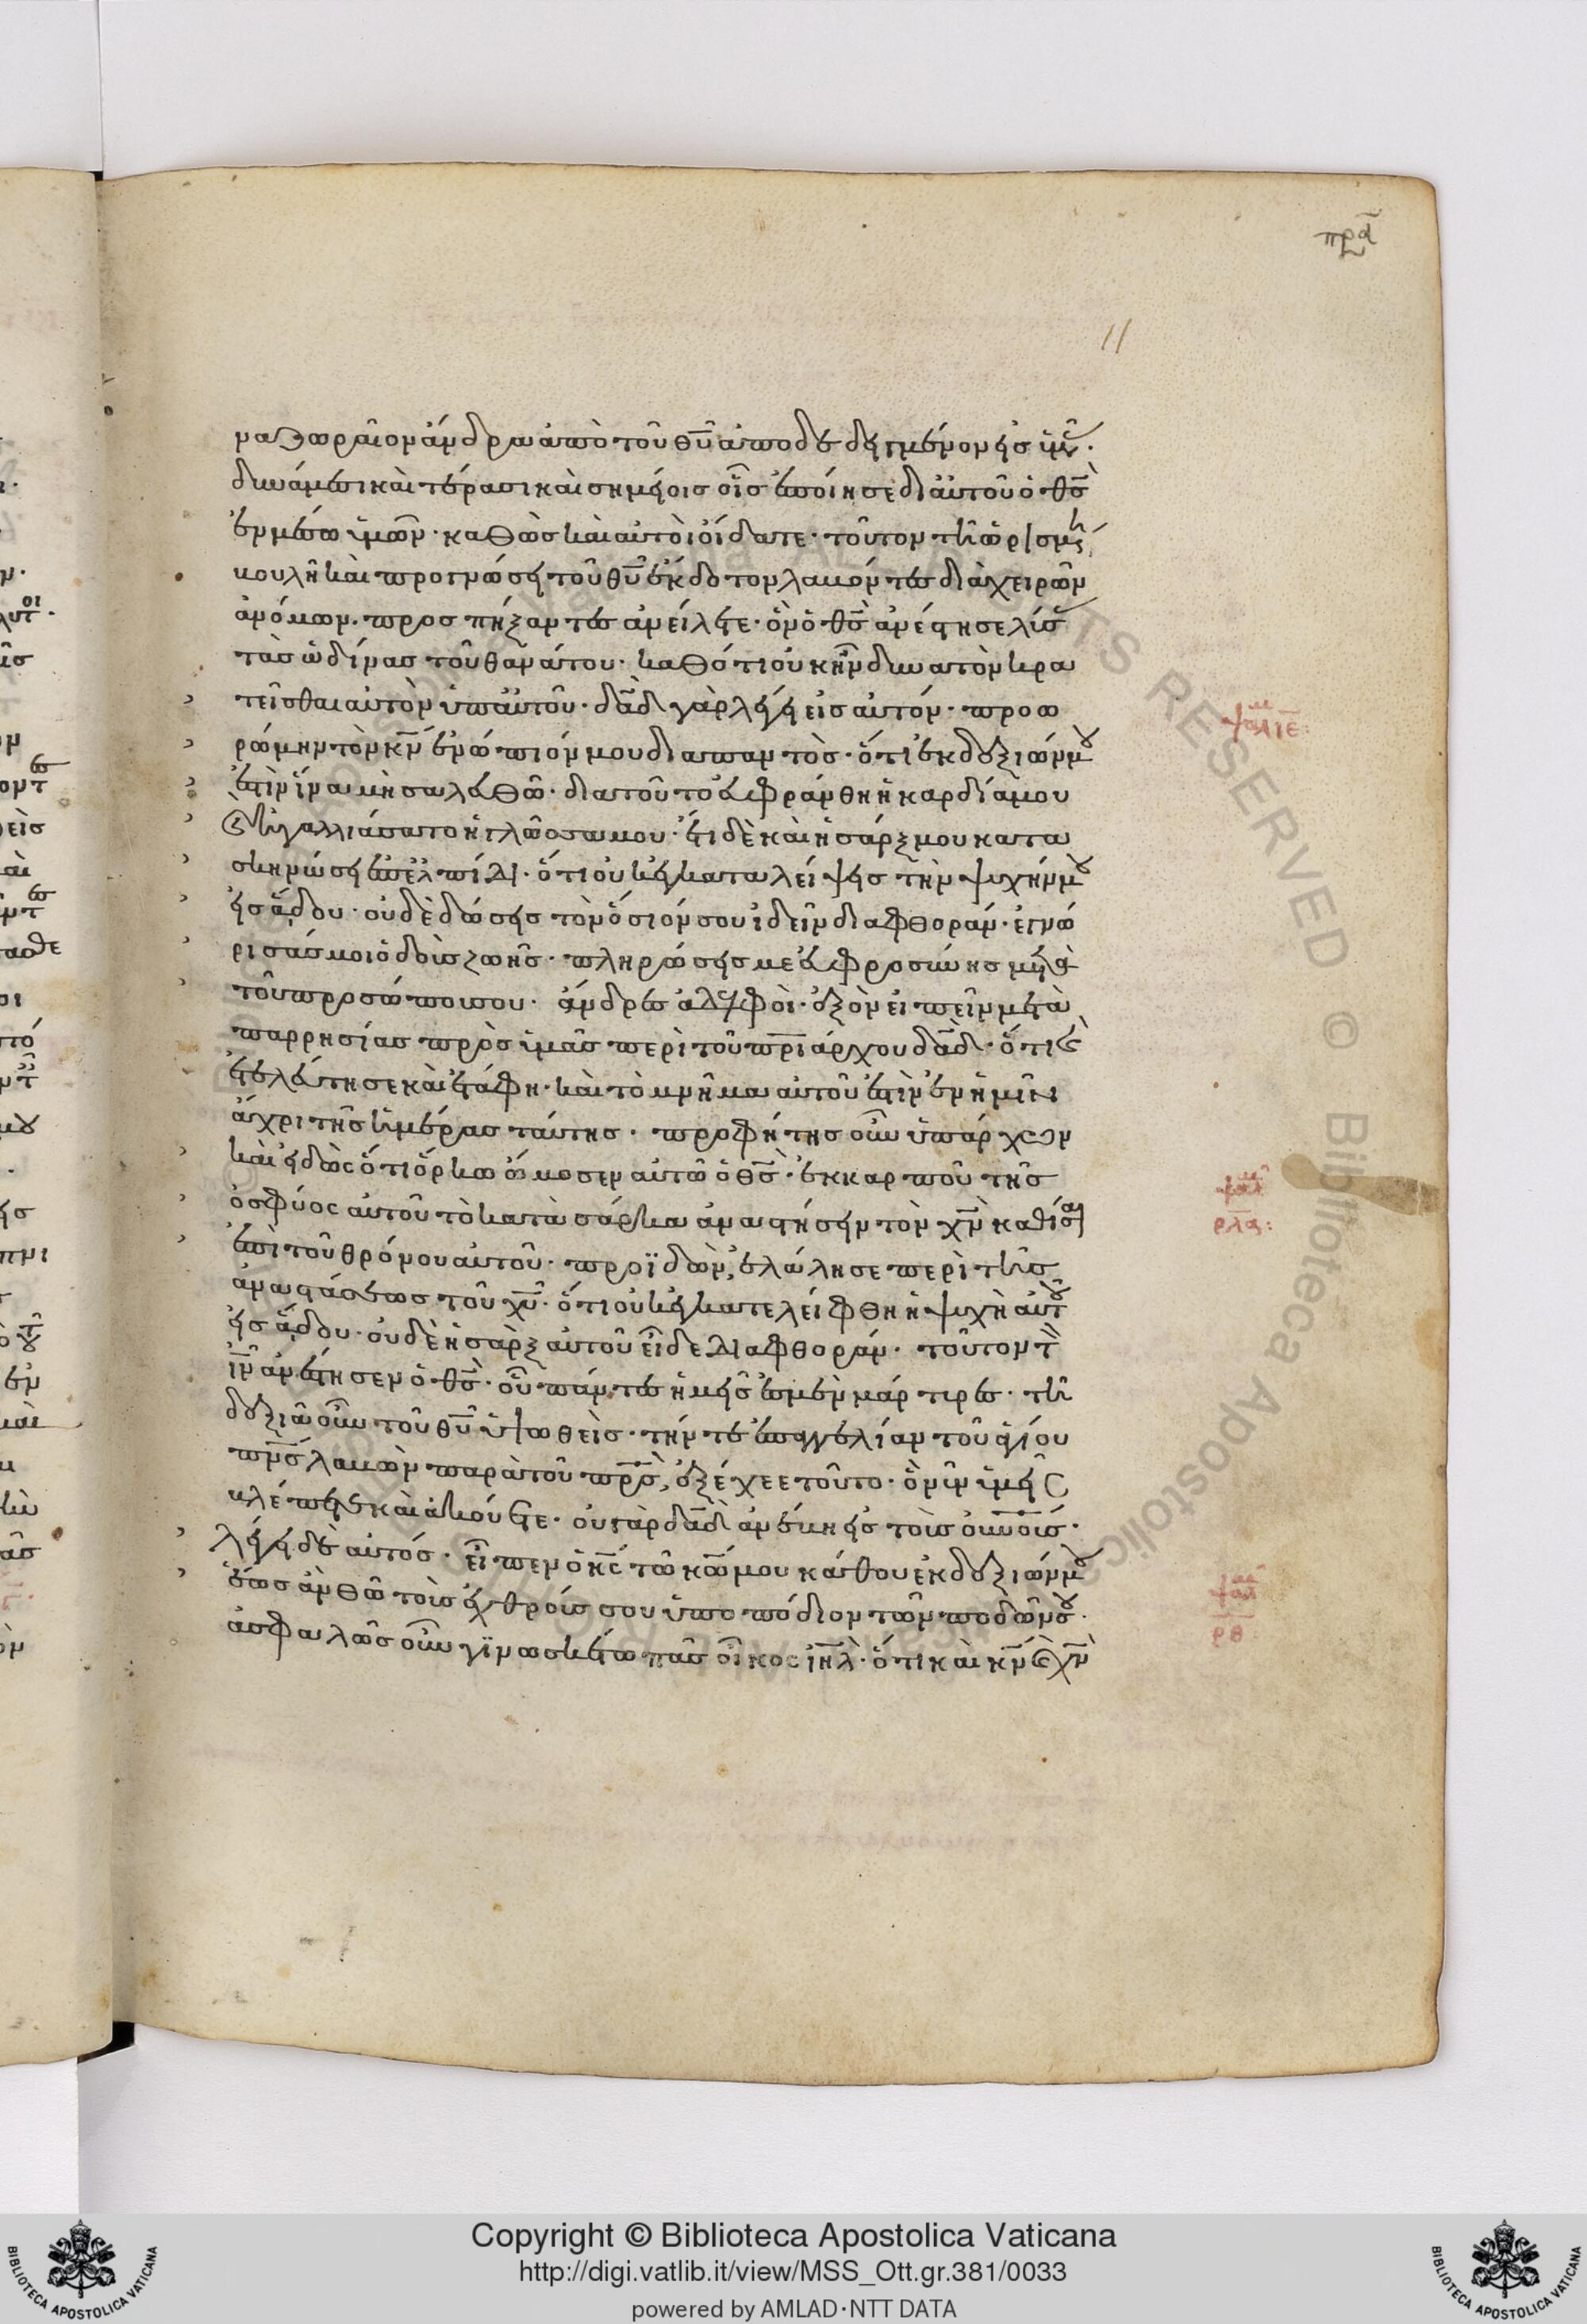 πρά
11
ναζωραῖον ἄνδρα ἀπὸ τοῦ θῡ ἀποδεδειγμένον εἰς ὑμᾶς·
δυνάμεσι καὶ τέρασι καὶ σημείοις οἷς ἐποίησε δι αὐτοῦ ὁ θς̄
ἐν μέσω ὑμῶν· καθὼς καὶ αὐτοὶ οἴδατε· τοῦτον τῆ ὡρισμένη
βουλῆ καὶ προγνώσει τοῦ θῡ ἔκδοτον λαβόντες διὰ χειρῶν
ἀνόμων· προσπήξαντες ἀνείλετε· ὃν ὁ θς̄ ἀνέστησε λύσας
τὰς ὠδίνας τοῦ θανάτου· καθότι οὐκ ἦν δυνατὸν κρα
τεῖσθαι αὐτὸν ὑπ αὐτοῦ· δᾱδ γὰρ λέγει εἰς αὐτόν· προω
ρώμην τὸν κν̄ ἐνώπιόν μου διαπαντὸς· ὅτι ἐκ δεξιῶν μου
ἐστὶν ἵνα μὴ σαλευθῶ· διατοῦτο εὐφράνθη ἡ καρδία μου
καὶ ἠγαλλιάσατο ἡ γλῶσσα μου· ἔτι δὲ καὶ ἡ σάρξ μου κατα
σκηνώσει ἐπελπίδι· ὅτι οὐκ ἐγκαταλείψεις τὴν ψυχήν μου
εἰς ἅδου· οὐδὲ δώσεις τὸν ὅσιόν σου ἰδεῖν διαφθοράν· ἐγνώ
ρισάς μοι ὁδοὺς ζωῆς· πληρώσεις με εὐφροσύνης μετὰ
τοῦ προσώπου σου· ἄνδρες ἀδελφοὶ· ἐξὸν εἰπεῖν μετὰ
παρρησίας πρὸς ὑμᾶς περὶ τοῦ πρ̄ιάρχου δᾱδ· ὅτι καὶ
ἐτελεύτησε καὶ ἐτάφη· καὶ τὸ μνῆμα αὐτοῦ ἐστὶν ἐν ἡμῖν
ἄχρι τῆς ἡμέρας ταύτης· προφήτης οὖν ὑπάρχων
καὶ εἰδὼς ὅτι ὅρκω ὤμοσεν αὐτῶ ὁ θς̄· ἐκ καρποῦ τῆς
ὀσφύος αὐτοῦ τὸ κατὰ σάρκα ἀναστήσειν τὸν χν̄ καθίσαι
ἐπὶ τοῦ θρόνου αὐτοῦ· προϊδὼν, ἐλάλησε περὶ τῆς
ἀναστάσεως τοῦ χῡ· ὅτι οὐκ ἐγκατελείφθη ἡ ψυχὴ αὐτοῦ
εἰς ἅδου· οὐδὲ ἡ σὰρξ αὐτοῦ εἶδε διαφθοράν· τοῦτον τὸν
ῑν ἀνέστησεν ὁ θς̄· οὗ πάντες ἡμεῖς ἐσμὲν μάρτυρες· τῆ
δεξιᾶ οὖν τοῦ θῡ ὑψωθεὶς· τήν τε ἐπαγγελίαν τοῦ ἁγίου
πν̄ς λαβὼν παρὰ τοῦ πρ̄ς, ἐξέχεε τοῦτο· ὃ νῦν ὑμεῖς
βλέπετε καὶ ἀκούετε· οὐ γὰρ δᾱδ ἀνέβη εἰς τοὺς οὐν̄οὺς·
λέγει δὲ αὐτός· εἶπεν ὁ κς̄ τῶ κω̄ μου κάθου ἐκ δεξιῶν μου
ἕως ἂν θῶ τοὺς ἐχθρούς σου ὑποπόδιον τῶν ποδῶν σου·
ἀσφαλῶς οὖν γινωσκέτω πᾶς οἶκος ιη̄λ· ὅτι καὶ κν̄ καὶ χν̄
ψαλμ ιε:
ψαλμ
ρλα:
ψαλμ
ρθ
Copyright © Biblioteca Apostolica Vaticana
http://digi.vatlib.it/view/MSS_Ott.gr.381/0033
powered by AMLAD·NTT DATA
BIBLIOTECA APOSTOLICA VATICANA
BIBLIOTECA APOSTOLICA VATICANA